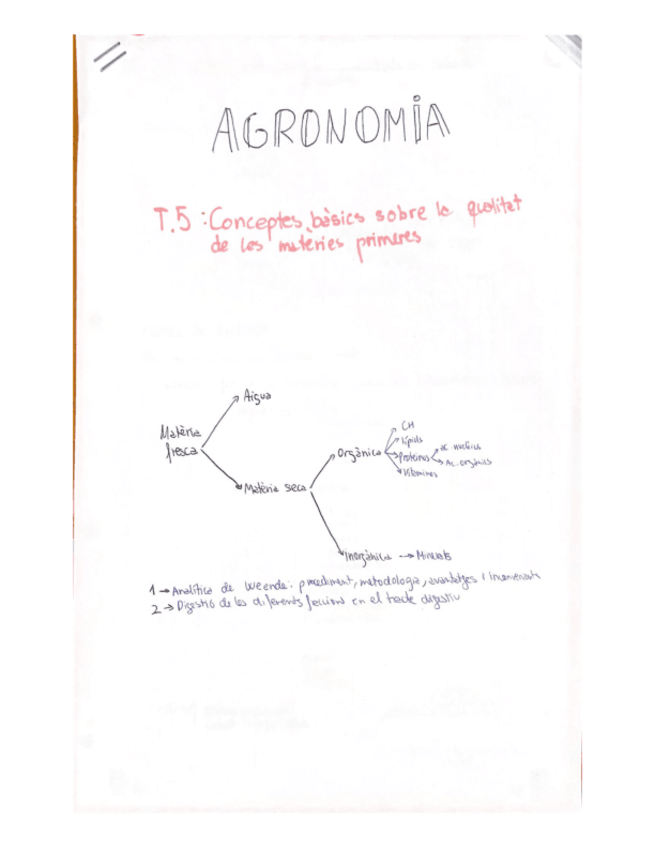 AGRONOMIA
T.5 : Conceptes bàsics sobre la qualitat
de les matèries primeres
Aigua
Matèria
fresca
Matèria seca
Orgànica
CH
Lípids
Proteïnes
Ac. nucleics
Ac. orgànics
Vitamines
Inorgànica → Minerals
1 → Analítica de Weende: procediment, metodologia, avantatges i inconvenients
2 → Digestió de les diferents fraccions en el tracte digestiu